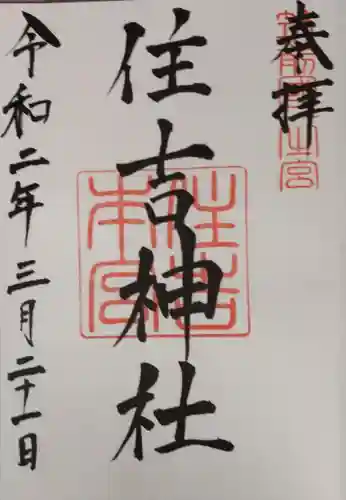 奉拝
住吉神社
住吉本宮
令和二年三月二十一日